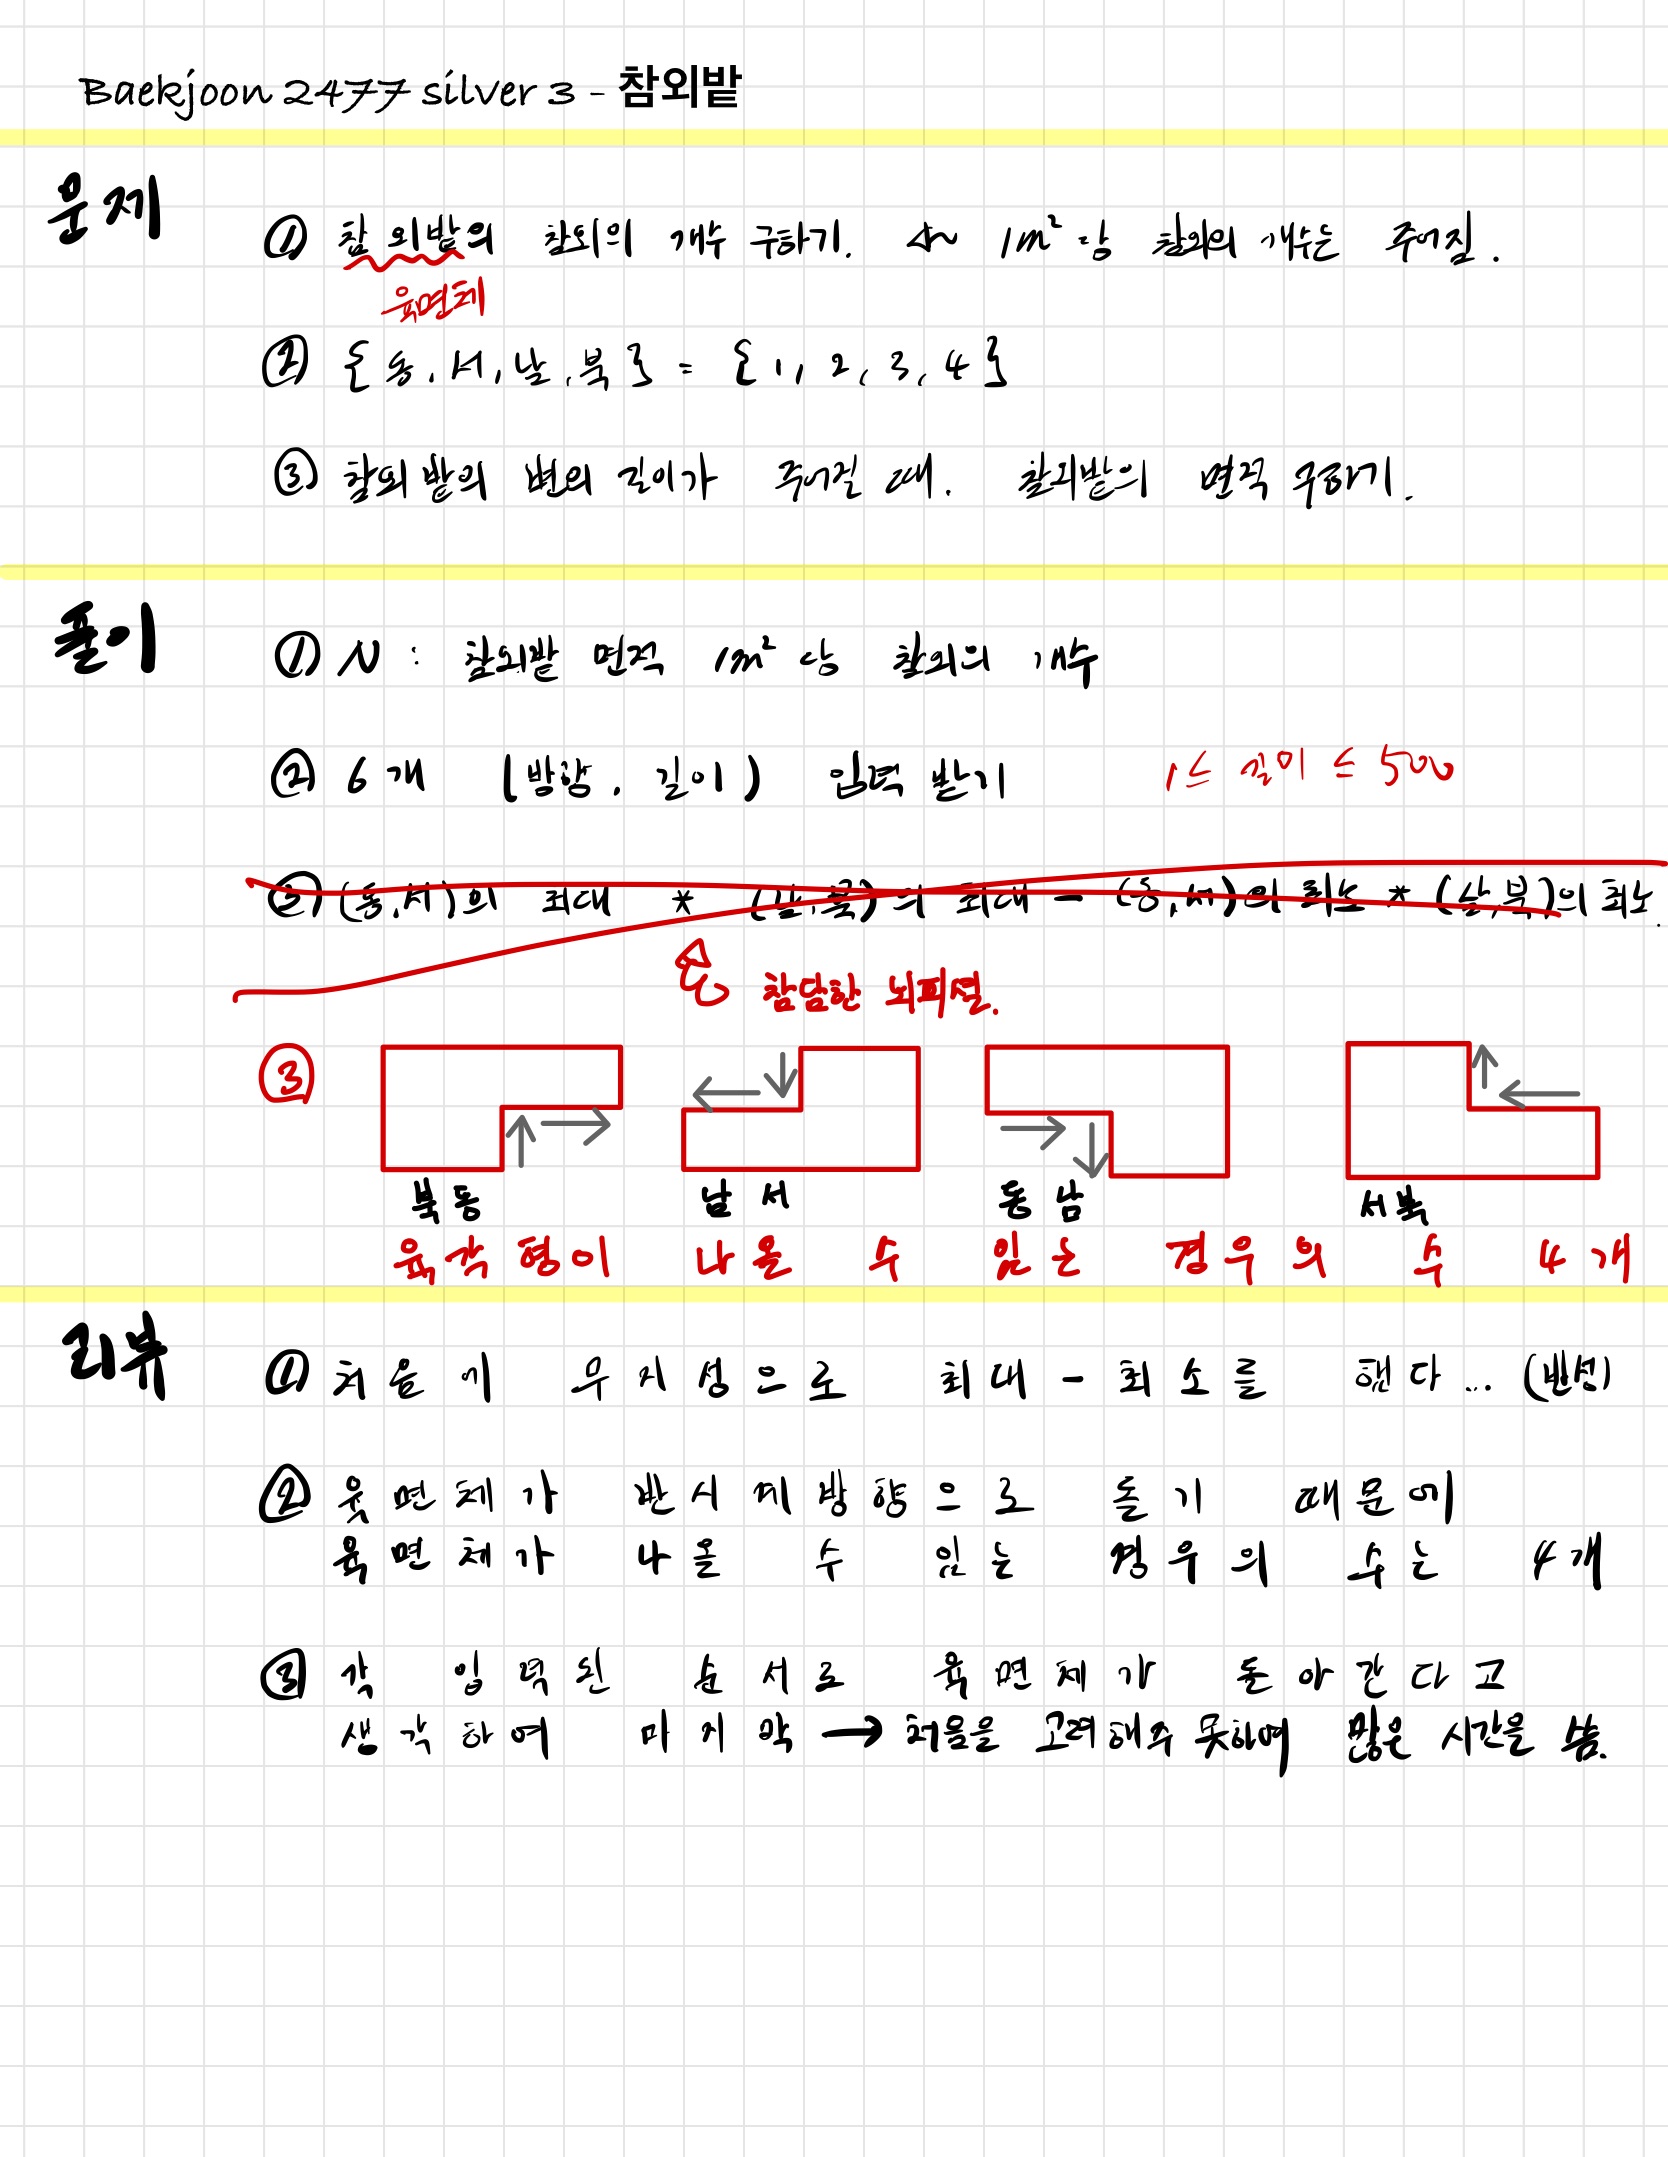 Baekjoon 2477 silver 3 - 참외밭
문제
① 참외밭의 참외의 개수 구하기. 1m² 당 참외의 개수는 주어짐.
육면체
② {동, 서, 남, 북} = {1, 2, 3, 4}
③ 참외밭의 변의 길이가 주어질 때. 참외밭의 면적 구하기.
풀이
① N : 참외밭 면적 1m² 당 참외의 개수
② 6개 (방향, 길이) 입력 받기 1 ≤ 길이 ≤ 500
③ (동,서)의 최대 * (남,북)의 최대 - (동,서)의 최소 * (남,북)의 최소.
참담한 뇌피셜.
③
북동 남서 동남 서북
육각형이 나올 수 있는 경우의 수 4개
리뷰
① 처음에 무지성으로 최대 - 최소를 했다... (반성)
② 육면체가 반시계방향으로 돌기 때문에
육면체가 나올 수 있는 경우의 수는 4개
③ 각 입력된 순서로 육면체가 돌아간다고
생각하여 마지막 → 처음을 고려해주 못하여 많은 시간을 씀.